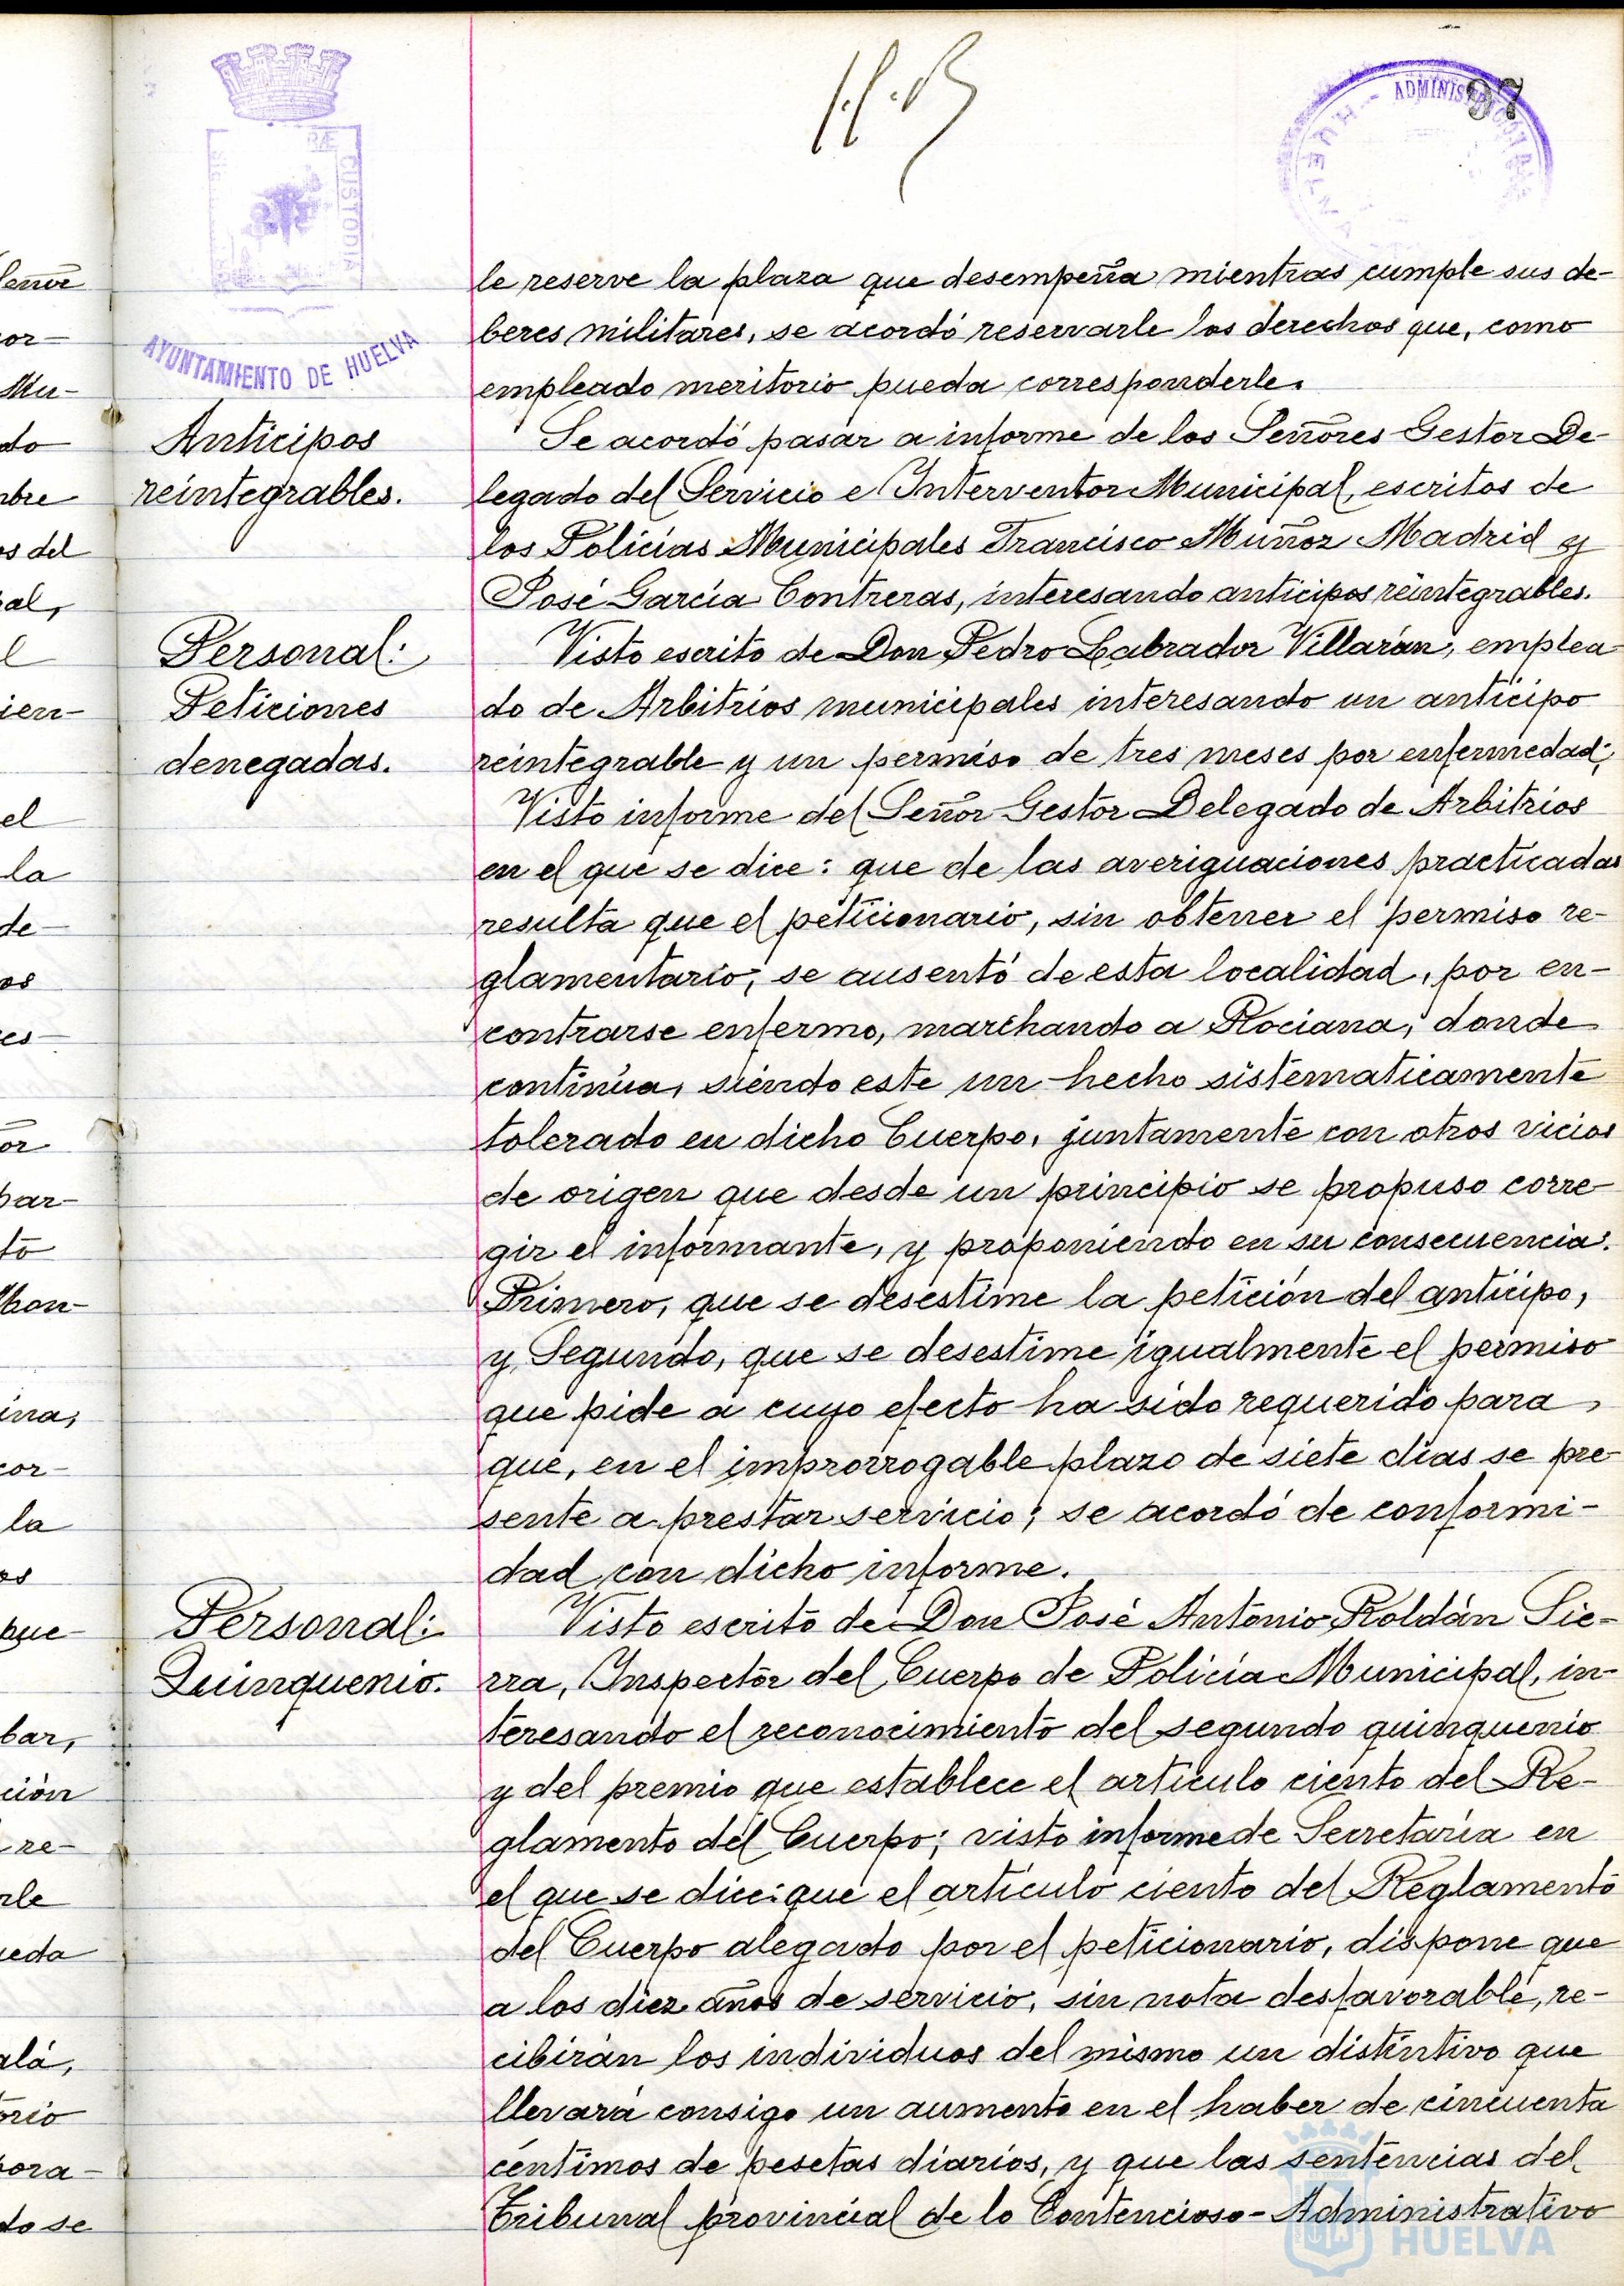 ADMINIS
97
CUSTODIA
AYUNTAMIENTO DE HUELVA
le reserve la plaza que desempeña mientras cumple sus de-
beres militares, se acordó reservarle los derechos que, como
empleado meritorio pueda corresponderle.
Anticipos
reintegrables.
Se acordó pasar a informe de los Señores Gestor De-
legado del Servicio e Interventor Municipal, escritos de
los Policías Municipales Francisco Muñoz Madrid y
José García Contreras, interesando anticipos reintegrables.
Personal:
Peticiones
denegadas.
Visto escrito de Don Pedro Labrador Villarán, emplea
do de Arbitrios municipales interesando un anticipo
reintegrable y un permiso de tres meses por enfermedad;
Visto informe del Señor Gestor Delegado de Arbitrios
en el que se dice: que de las averiguaciones practicadas
resulta que el peticionario, sin obtener el permiso re-
glamentario, se ausentó de esta localidad, por en-
contrarse enfermo, marchando a Rociana, donde
continúa, siendo este un hecho sistematicamente
tolerado en dicho Cuerpo, juntamente con otros vicios
de origen que desde un principio se propuso corre-
gir el informante, y proponiendo en su consecuencia:
Primero, que se desestime la petición del anticipo,
y Segundo, que se desestime igualmente el permiso
que pide a cuyo efecto ha sido requerido para
que, en el improrrogable plazo de siete días se pre-
sente a prestar servicio; se acordó de conformi-
dad con dicho informe.
Personal:
Quinquenio.
Visto escrito de Don José Antonio Roldán Sie-
rra, Inspector del Cuerpo de Policía Municipal, in-
teresando el reconocimiento del segundo quinquenio
y del premio que establece el artículo ciento del Re-
glamento del Cuerpo; visto informe de Secretaría en
el que se dice: que el artículo ciento del Reglamento
del Cuerpo alegado por el peticionario, dispone que
a los diez años de servicio, sin nota desfavorable, re-
cibirán los individuos del mismo un distintivo que
llevará consigo un aumento en el haber de cincuenta
céntimos de pesetas diarios, y que las sentencias del
Tribunal provincial de lo Contencioso-Administrativo
HUELVA